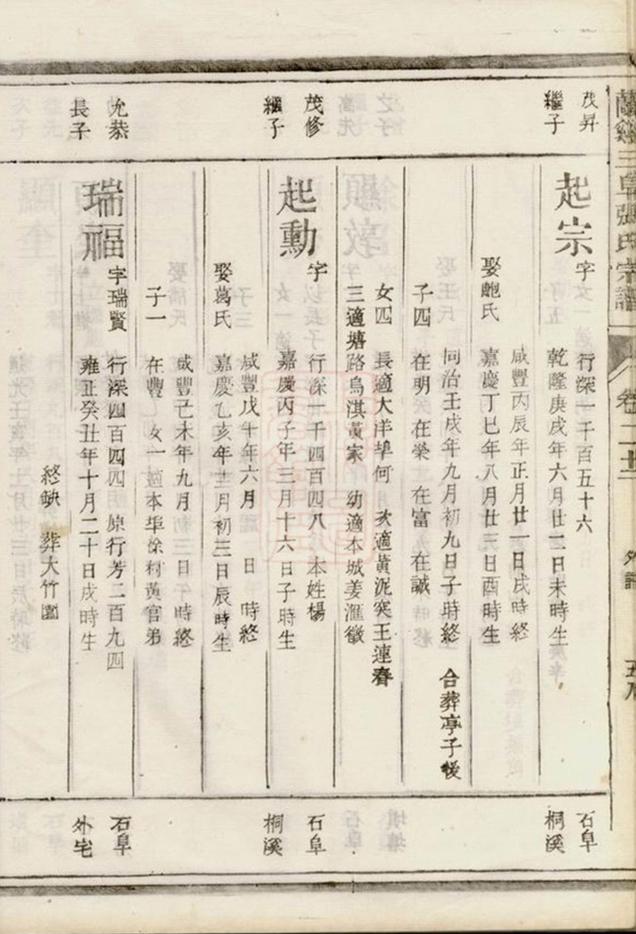 蘭谿三皐張氏宗譜
卷二十三
外譜
茂昇
繼子
起宗
字
行深一千百五十六
乾隆庚戌年六月廿二日未時生
咸豐丙辰年正月廿一日戌時終
娶鮑氏
嘉慶丁巳年八月廿三日酉時生
同治壬戌年九月初九日子時終 合葬亭子後
子四 在明 在榮 在富 在誠
女四 長適大洋埠何 次適黃泥突王連春
三適塘路烏淇黃家 幼適本城姜滙徽
石阜
桐溪
茂修
繼子
起勳
字
行深一千四百四八 本姓楊
嘉慶丙子年三月十六日子時生
咸豐戊午年六月 日 時終
娶葛氏
嘉慶乙亥年十二月初三日辰時生
咸豐己未年九月 日 時終
子一 在豐 女一適本埠徐柯黃官弟
石阜
桐溪
允恭
長子
瑞福
字瑞賢 行深四百四四 原行芳二百九四
雍正癸丑年十月二十日戌時生
終缺 葬大竹園
石阜
外宅